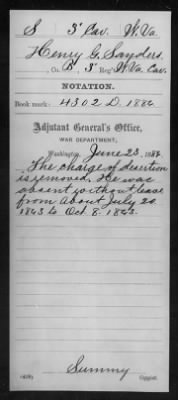 S 3' Cav. W. Va.
Henry G. Sanders
, Co. B, 3' Reg't W. Va. Cav.
NOTATION.
Book mark: 4302 D. 1886
Adjutant General's Office,
WAR DEPARTMENT,
Washington, June 23, 1886
The charge of desertion
is removed. He was
absent without leave
from about July 20.
1863 to Oct. 8. 1863.
Summy
Copyist.